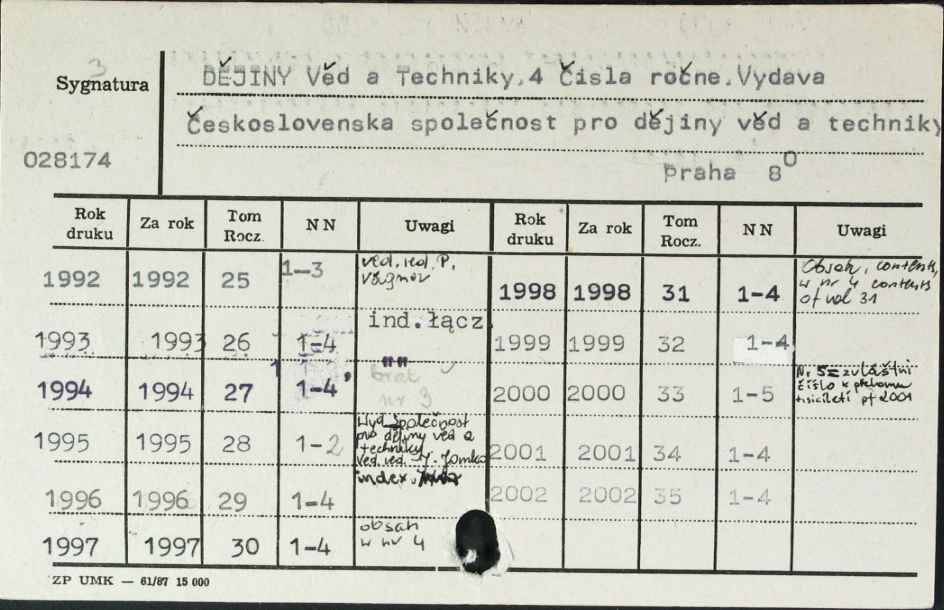 Sygnatura
DĚJINY Věd a Techniky.4 Čisla ročne.Vydava
Československa společnost pro dějiny věd a techniky
028174
Praha 8°
Rok druku Za rok Tom Rocz. N N Uwagi Rok druku Za rok Tom Rocz. N N Uwagi
1992 1992 25 1-3 ved. red. P.
1998 1998 31 1-4 Obsah, contents,
w nr 4 contents
of vol 31
ind.łącz.
1993 1993 26 1-4 "" 1999 1999 32 1-4
1994 1994 27 1-4, brak
nr 3
2000 2000 33 1-5 Nr 5 = zvláštní
číslo k
tisíciletí pf 2001
1995 1995 28 1-2 Wyd Společnost
pro dějiny věd a
techniky
ved. red.
2001 2001 34 1-4
1996 1996 29 1-4 index. 2002 2002 35 1-4
1997 1997 30 1-4 obsah
w nr 4
ZP UMK — 61/87 15 000